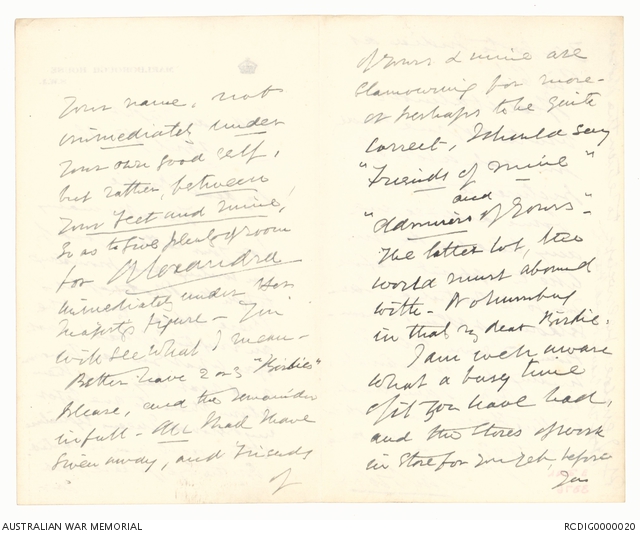 Your name, not
immediately under
Your own good self,
but rather, between
Your Feet and mine,
so as to give plenty of room
for Alexandra
immediately under Her
Majesty's figure - You
will see what I mean -
Better have 2 only "Birdies"
Please, and the remainder
in full - All I had I have
given away, and Friends
of
of Yours & mine are
clamouring for more -
or perhaps to be quite
correct, I should say
"Friends of mine"
and
"admirers of Yours" -
The latter lot, the
world must abound
with - No humbug
in that my dear Birdie.
I am well aware
what a busy time
of it you have had,
and the stores of work
in store for you yet, before
You
AUSTRALIAN WAR MEMORIAL
RCDIG0000020